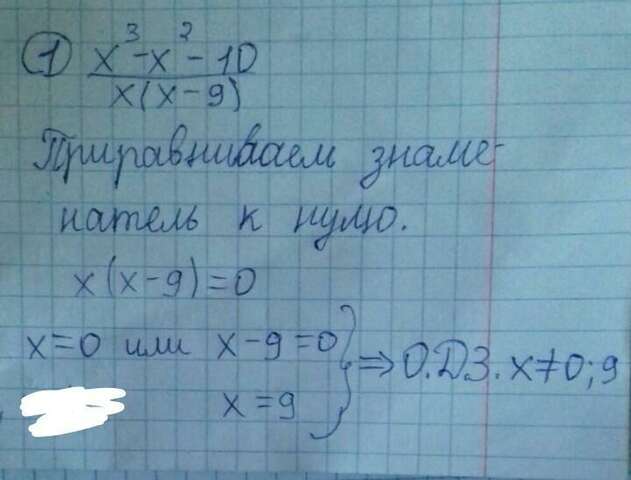 1 x³-x²-10
x(x-9)
Приравниваем знаме-
натель к нулю.
x(x-9)=0
x=0 или x-9=0
x=9
=> О.Д.З. x≠0;9